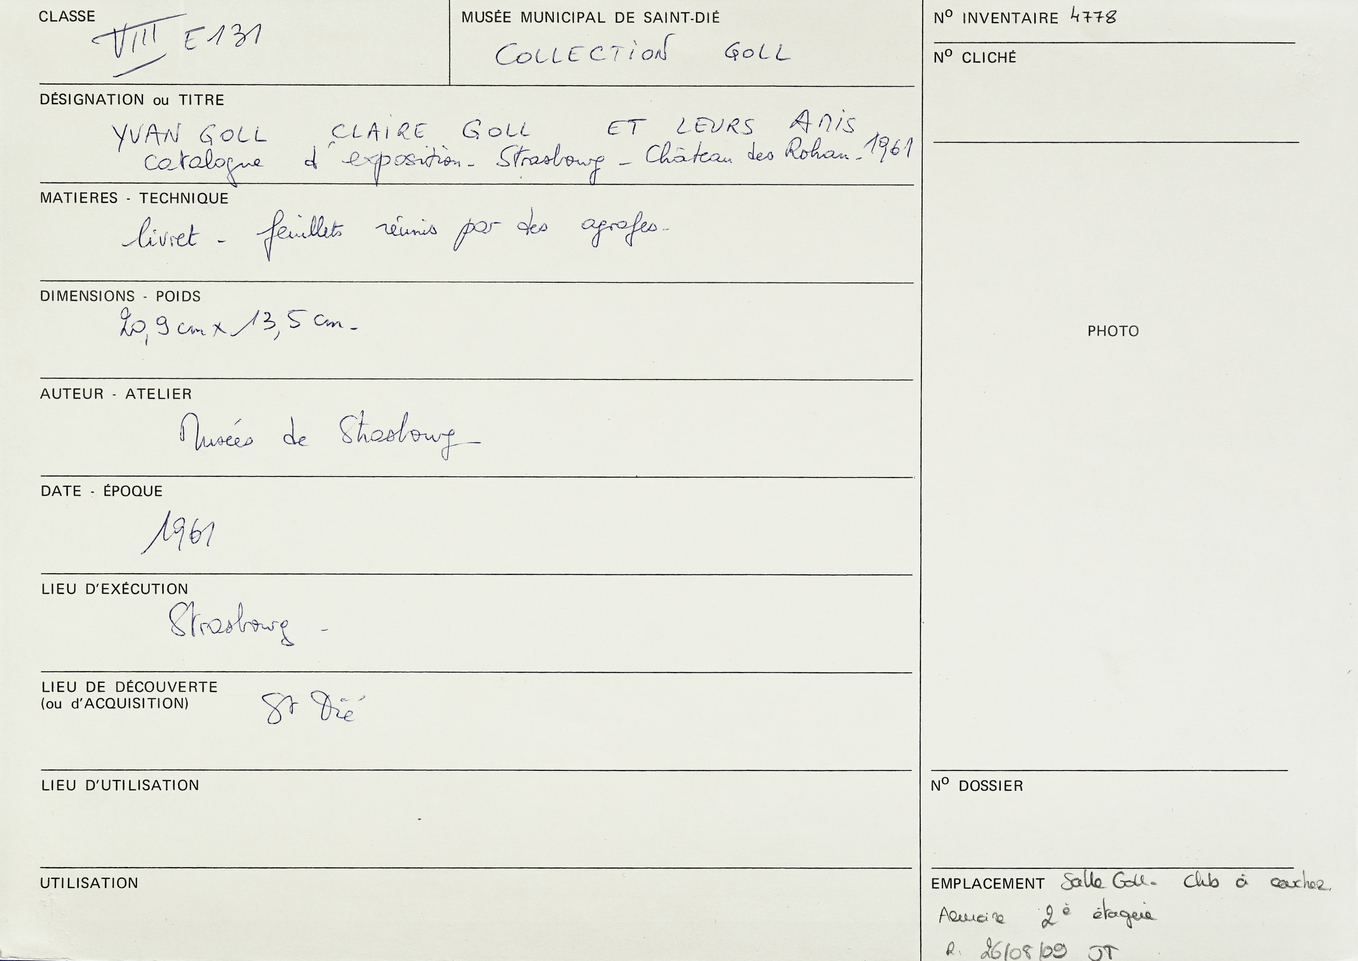 CLASSE
VIII E131
MUSÉE MUNICIPAL DE SAINT-DIÉ
COLLECTION GOLL
Nº INVENTAIRE 4778
Nº CLICHÉ
DÉSIGNATION ou TITRE
YVAN GOLL CLAIRE GOLL ET LEURS AMIS
catalogue d'exposition - Strasbourg - Château des Rohan - 1961
MATIERES - TECHNIQUE
livret - feuillets réunis par des agrafes -
DIMENSIONS - POIDS
20,9 cm x 13,5 cm -
PHOTO
AUTEUR - ATELIER
Musées de Strasbourg
DATE - ÉPOQUE
1961
LIEU D'EXÉCUTION
Strasbourg -
LIEU DE DÉCOUVERTE
(ou d'ACQUISITION)
St Dié
LIEU D'UTILISATION
Nº DOSSIER
UTILISATION
EMPLACEMENT Salle Goll - à
Armoire 2è étagère
R. 26/08/09 JT